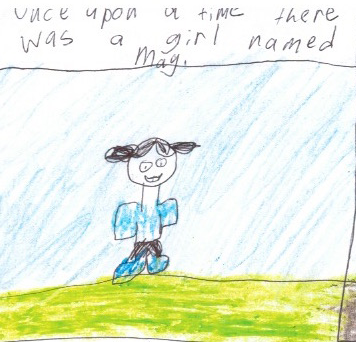 once upon a time there
was a girl named
Mag.